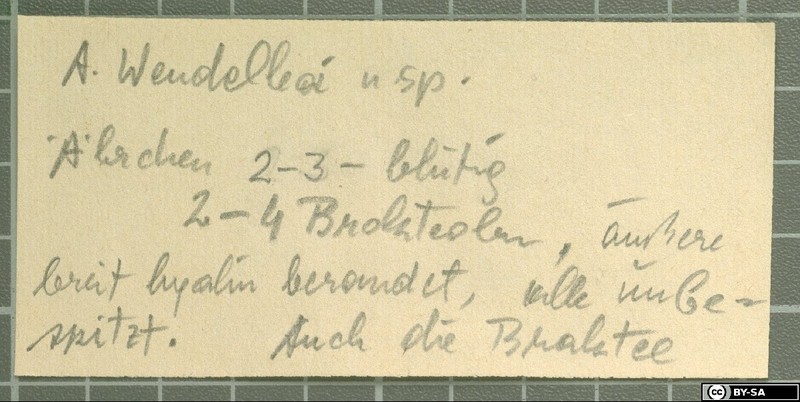 A. Wendelboi n sp.
Ährchen 2-3-blütig
2-4 Brakteolen, äußere
breit hyalin berandet, alle unbe-
spitzt. Auch die Braktee
BY-SA